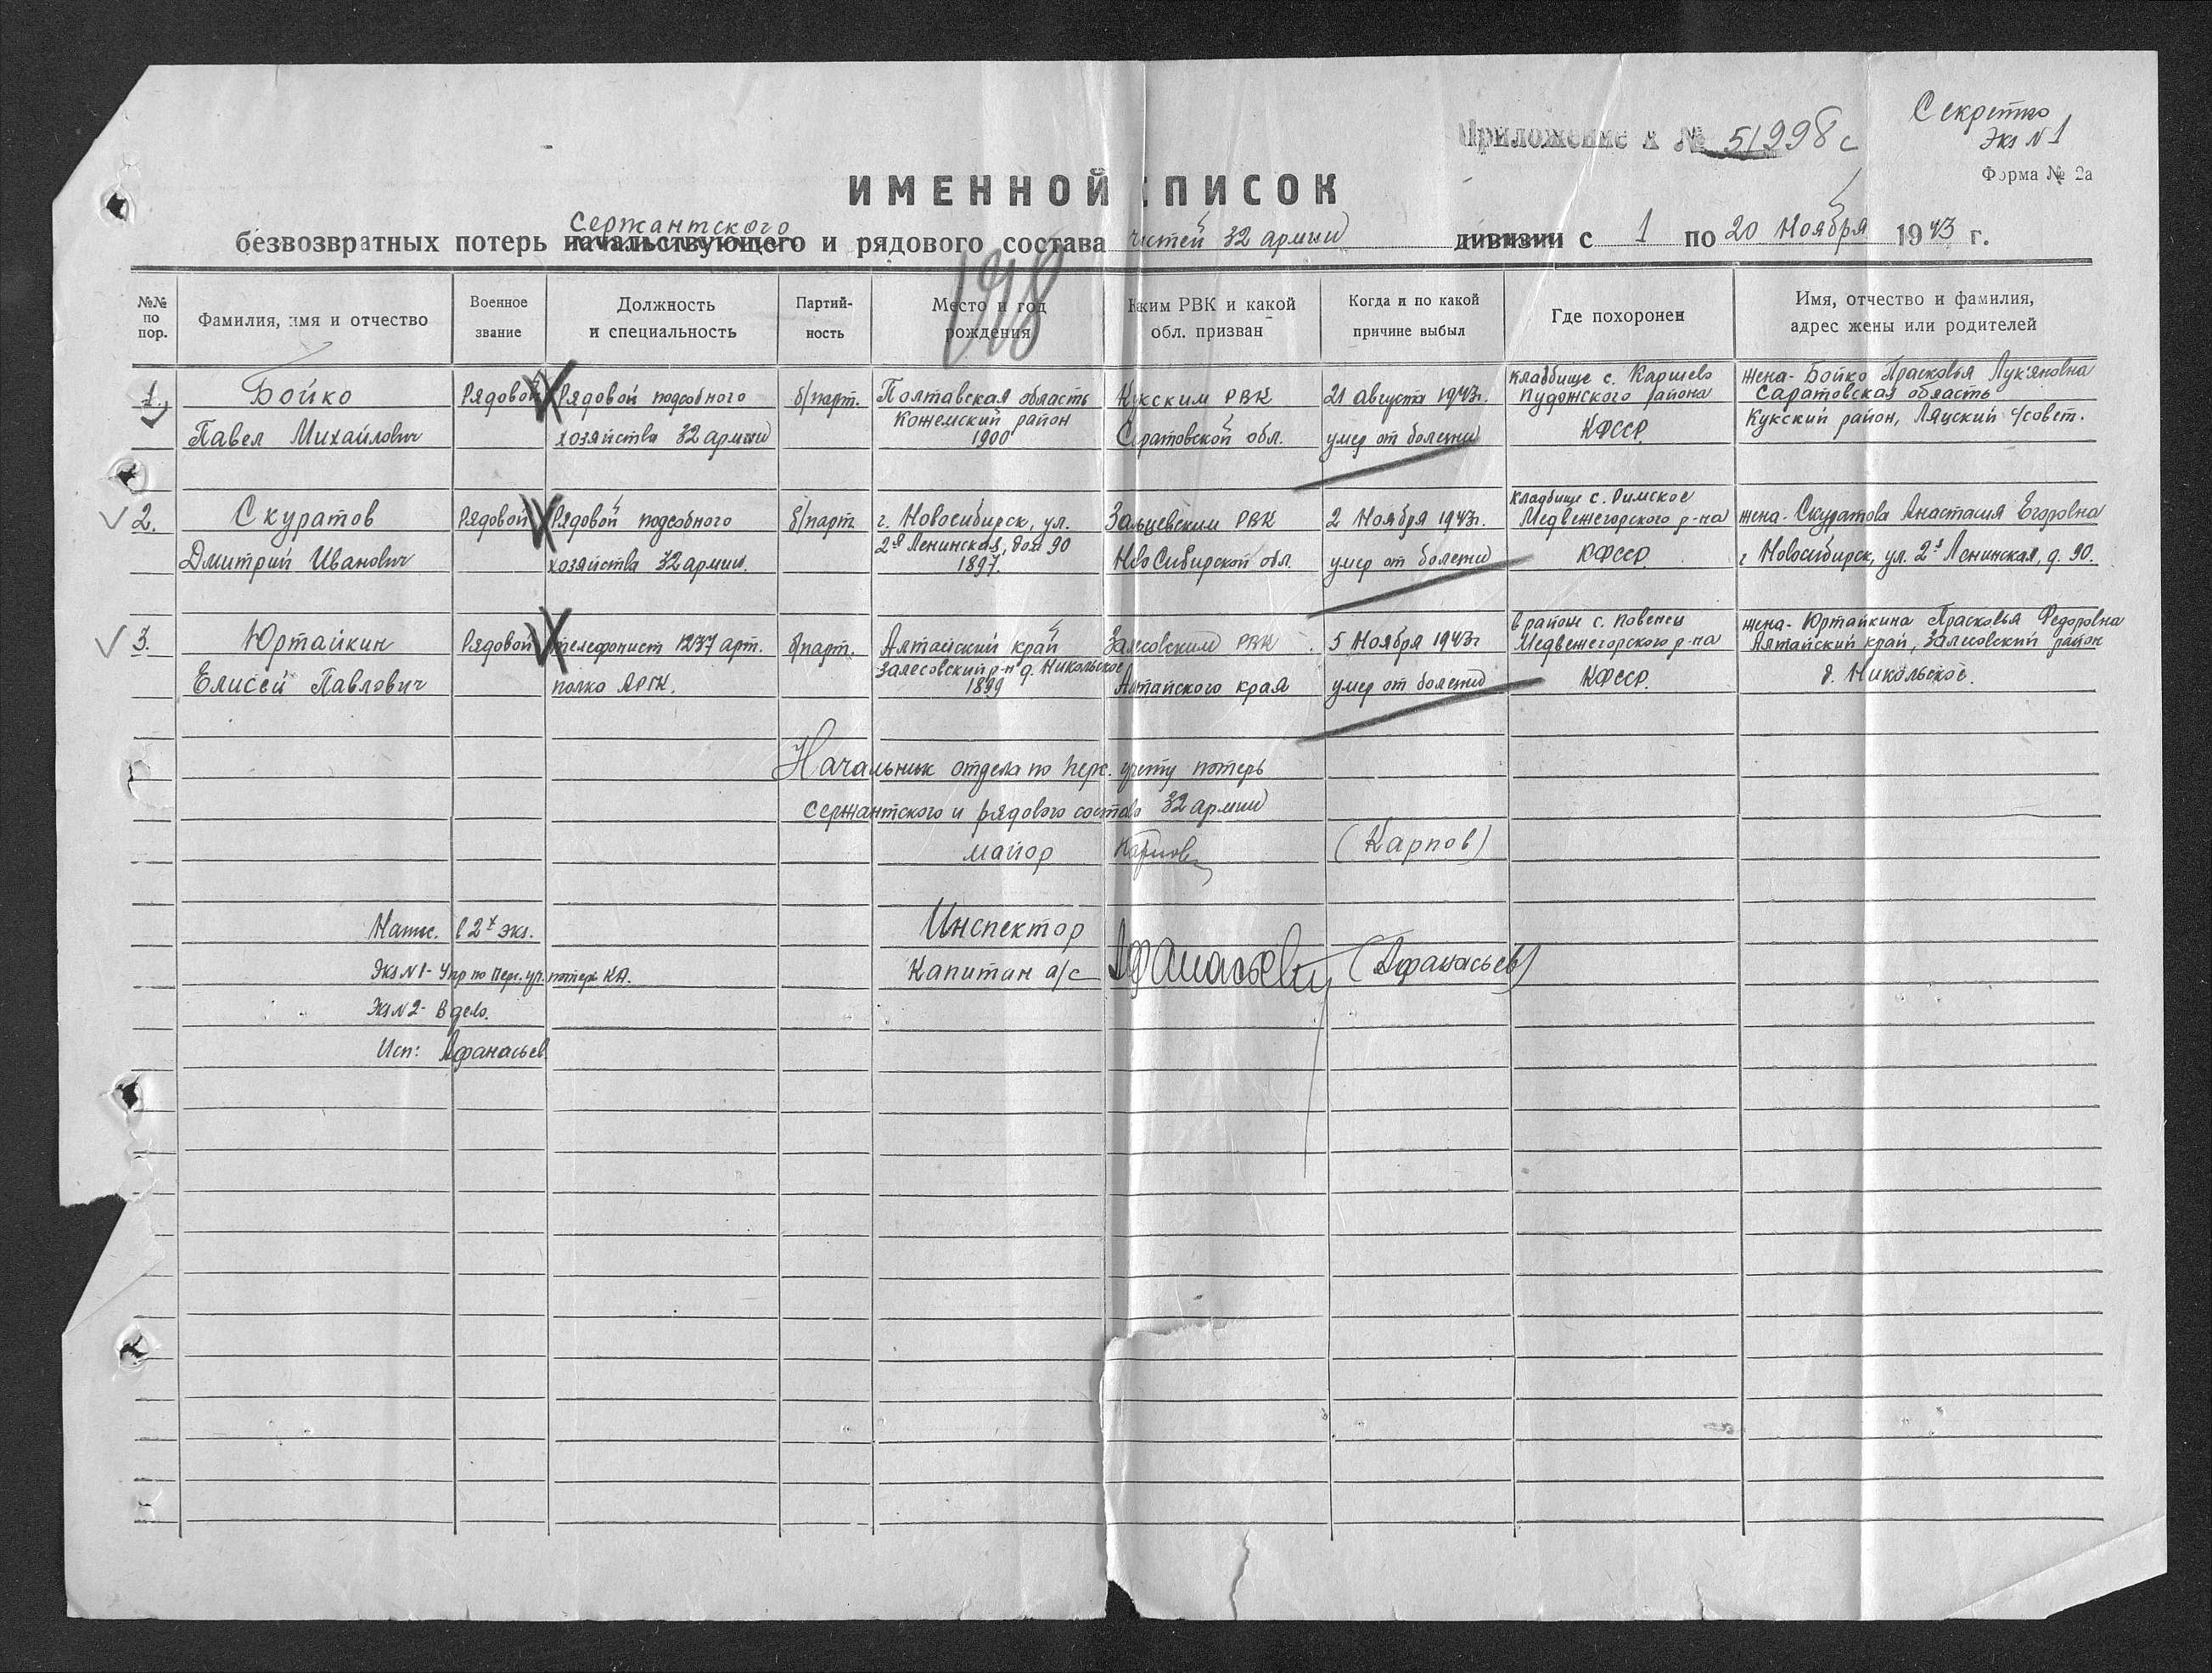 Секретно
Экз №1
Приложение к № 51998с
Форма № 2а
ИМЕННОЙ СПИСОК
Сержантского
безвозвратных потерь начальствующего и рядового состава частей 32 армии дивизии с 1 по 20 Ноября 1943 г.
198
№№ по пор.
Фамилия, имя и отчество
Военное звание
Должность и специальность
Партий- ность
Место и год рождения
Каким РВК и какой обл. призван
Когда и по какой причине выбыл
Где похоронен
Имя, отчество и фамилия, адрес жены или родителей
1.
Бойко
Павел Михайлович
Рядовой
Рядовой подсобного
хозяйства 32 армии
б/парт.
Полтавская область
Кожемский район
1900
Кукским РВК
Саратовской обл.
21 августа 1943г.
умер от болезни
кладбище с. Каршево
Пудожского района
КФССР
жена- Бойко Прасковья Лукъяновна
Саратовская область
Кукский район, Ляцский с/совет.
2.
Скуратов
Дмитрий Иванович
Рядовой
Рядовой подсобного
хозяйства 32 армии.
б/парт
г. Новосибирск, ул.
2я Ленинская, дом 90
1897.
Зальцевским РВК
НовоСибирской обл.
2 Ноября 1943г.
умер от болезни
кладбище с. Римское
Медвежегорского р-на
КФССР
жена- Скуратова Анастасия Егоровна
г Новосибирск, ул. 2я Ленинская, д. 90.
3.
Юртайкин
Елисей Павлович
Рядовой
телефонист 1237 арт.
полка АРГК.
б/парт.
Алтайский край
Залесовский р-н д. Никольское
1899
Залесовским РВК
Алтайского края
5 Ноября 1943г
умер от болезни
в районе с. Повенец
Медвежегорского р-на
КФССР.
жена- Юртайкина Прасковья Федоровна
Алтайский край, Залесовский район
д. Никольское.
Начальник отдела по перс. учету потерь
сержантского и рядового состава 32 армии
майор Карпов (Карпов)
Инспектор
Капитан а/с Афанасьев (Афанасьев)
Напис. в 2х экз.
Экз №1- Упр по перс. уч. потерь КА.
Экз №2- В дело.
Исп: Афанасьев